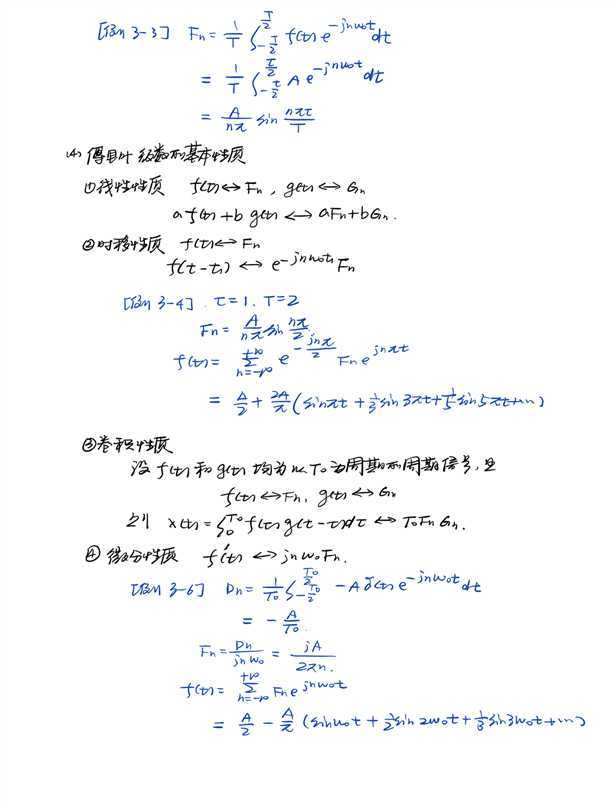 [例3-3] Fn = 1/T ∫_{-T/2}^{T/2} f(t) e^{-jnω₀t} dt
= 1/T ∫_{-τ/2}^{τ/2} A e^{-jnω₀t} dt
= A/nπ sin nπτ/T
(4) 傅里叶级数的基本性质
①线性性质 f(t)↔Fn, g(t)↔Gn
a f(t)+b g(t) ↔ aFn+bGn.
②时移性质 f(t)↔Fn
f(t-t₁) ↔ e^{-jnω₀t₁} Fn
[例3-4]. τ=1, T=2
Fn = A/nπ sin nπ/2
f(t) = Σ_{n=-∞}^{+∞} e^{-jnπ/2} Fn e^{jnπt}
= A/2 + 2A/π (sinπt + 1/3 sin3πt + 1/5 sin5πt+…)
③卷积性质
设f(t)和g(t)均为以T₀为周期的周期信号,且
f(t)↔Fn, g(t)↔Gn
则 x(t) = ∫_0^{T₀} f(τ) g(t-τ)dτ ↔ T₀FnGn.
④ 微分性质 f'(t) ↔ jnω₀Fn.
[例3-6] Dn = 1/T₀ ∫_{-T₀/2}^{T₀/2} -Aδ(t) e^{-jnω₀t} dt
= -A/T₀.
Fn = Dn/jnω₀ = jA/2πn.
f(t) = Σ_{n=-∞}^{+∞} Fn e^{jnω₀t}
= A/2 - A/π (sinω₀t + 1/2 sin2ω₀t + 1/3 sin3ω₀t+…)